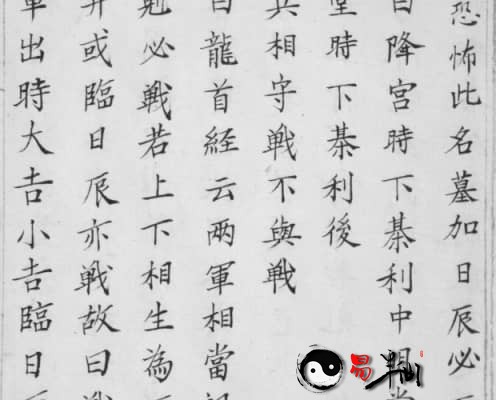 恐怖此名墓加日辰必
降宮時下棊利中明
堂時下棊利後
兵相守戰不與戰
曰龍首經云兩軍相當
尅必戰若上下相生為
并或臨日辰亦戰故曰
軍出時大吉小吉臨日
易